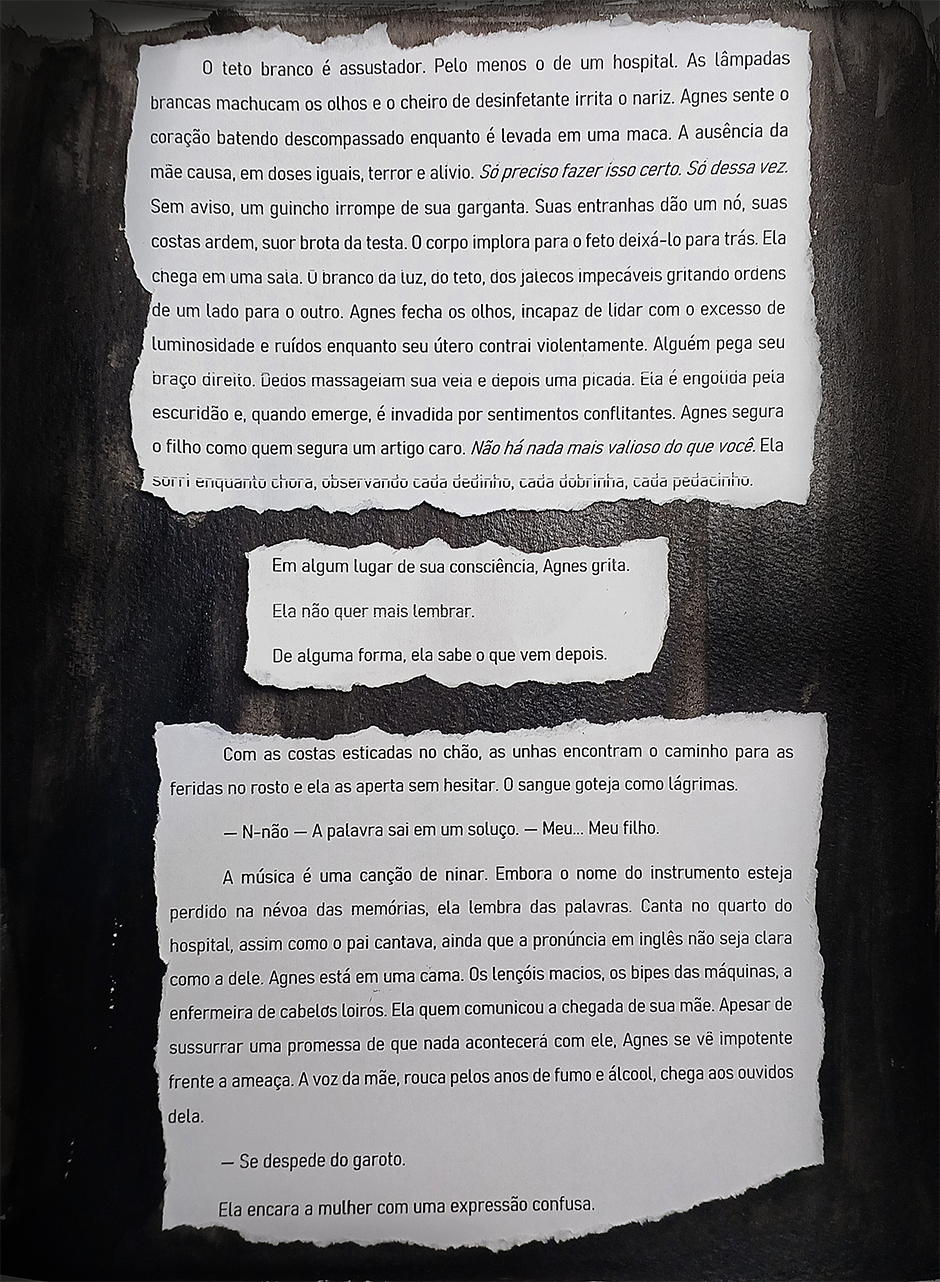 O teto branco é assustador. Pelo menos o de um hospital. As lâmpadas
brancas machucam os olhos e o cheiro de desinfetante irrita o nariz. Agnes sente o
coração batendo descompassado enquanto é levada em uma maca. A ausência da
mãe causa, em doses iguais, terror e alívio. Só preciso fazer isso certo. Só dessa vez.
Sem aviso, um guincho irrompe de sua garganta. Suas entranhas dão um nó, suas
costas ardem, suor brota da testa. O corpo implora para o feto deixá-lo para trás. Ela
chega em uma sala. O branco da luz, do teto, dos jalecos impecáveis gritando ordens
de um lado para o outro. Agnes fecha os olhos, incapaz de lidar com o excesso de
luminosidade e ruídos enquanto seu útero contrai violentamente. Alguém pega seu
braço direito. Dedos massageiam sua veia e depois uma picada. Ela é engolida pela
escuridão e, quando emerge, é invadida por sentimentos conflitantes. Agnes segura
o filho como quem segura um artigo caro. Não há nada mais valioso do que você. Ela
sorri enquanto chora, observando cada dedinho, cada dobrinha, cada pedacinho.
Em algum lugar de sua consciência, Agnes grita.
Ela não quer mais lembrar.
De alguma forma, ela sabe o que vem depois.
Com as costas esticadas no chão, as unhas encontram o caminho para as
feridas no rosto e ela as aperta sem hesitar. O sangue goteja como lágrimas.
— N-não — A palavra sai em um soluço. — Meu... Meu filho.
A música é uma canção de ninar. Embora o nome do instrumento esteja
perdido na névoa das memórias, ela lembra das palavras. Canta no quarto do
hospital, assim como o pai cantava, ainda que a pronúncia em inglês não seja clara
como a dele. Agnes está em uma cama. Os lençóis macios, os bipes das máquinas, a
enfermeira de cabelos loiros. Ela quem comunicou a chegada de sua mãe. Apesar de
sussurrar uma promessa de que nada acontecerá com ele, Agnes se vê impotente
frente a ameaça. A voz da mãe, rouca pelos anos de fumo e álcool, chega aos ouvidos
dela.
— Se despede do garoto.
Ela encara a mulher com uma expressão confusa.